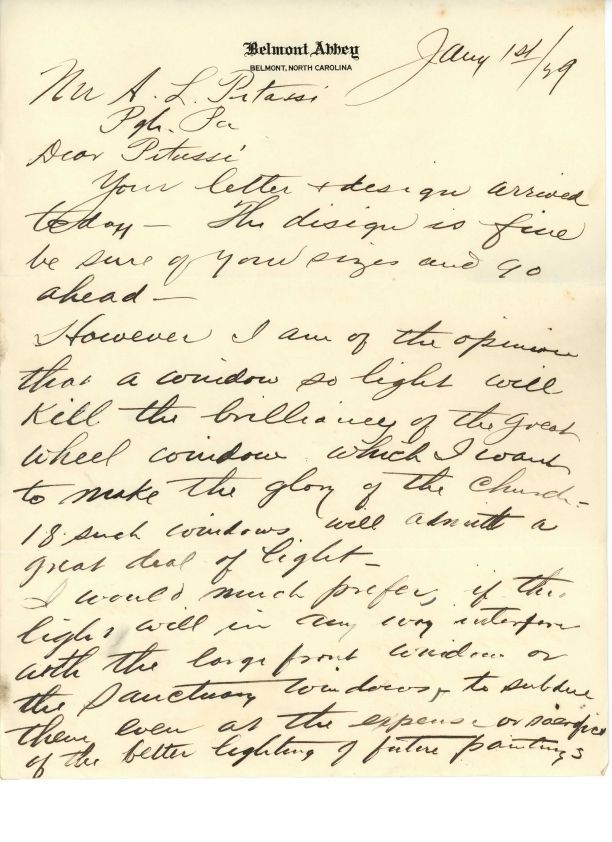 Belmont Abbey
BELMONT, NORTH CAROLINA
Jany 1st/29
Mr A. L. Pitassi
Pgh. Pa
Dear Pitassi
Your letter + design arrived
today – The disign is fine
be sure of your sizes and go
ahead –
However I am of the opinion
that a window so light will
Kill the brilliancy of the Great
wheel window which I want
to make the glory of the Church –
18 such windows will admitt a
great deal of light –
I would much prefer, if the
light will in any way interfere
with the large front window or
the Sanctuary windows, to subdue
them even at the expense or sacrifice
of the better lighting of future paintings